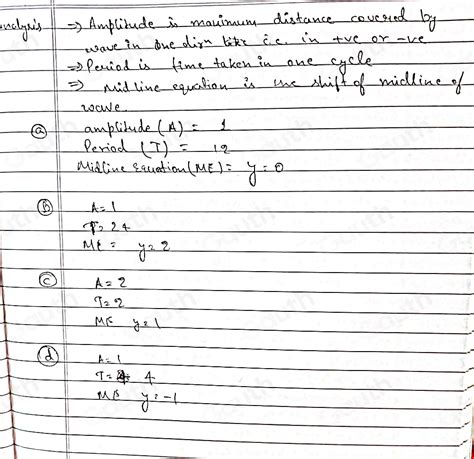 analysis => Amplitude is maximum distance covered by
wave in one dirn like i.e. in +ve or -ve
=> Period is time taken in one cycle
=> Midline equation is the shift of midline of
wave.
(a) amplitude (A) = 1
Period (T) = 12
Midline equation (ME) = y = 0
(B) A = 1
T = 24
ME = y = 2
(c) A = 2
T = 2
ME y = 1
(d) A = 1
T = 4
ME y = -1